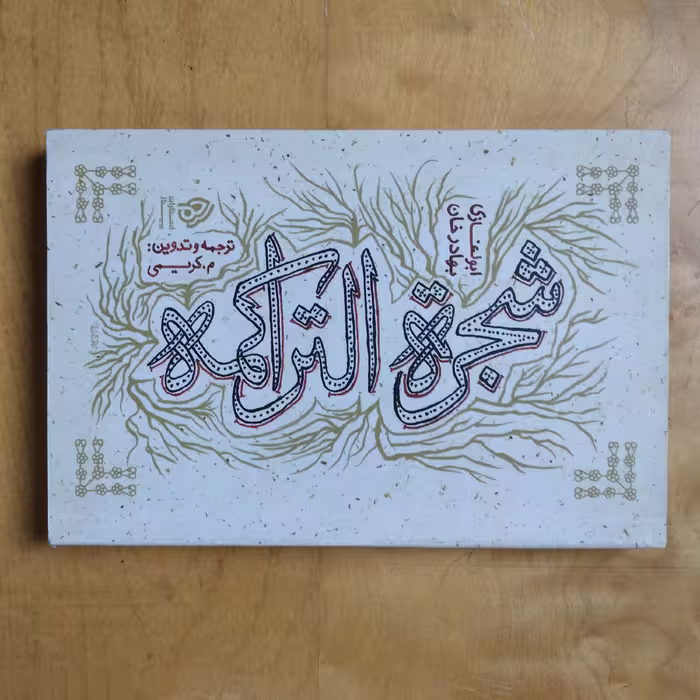 شجرة التراكمه
ابوالغازی
بهادرخان
ترجمه و تدوین:
م. کریمی